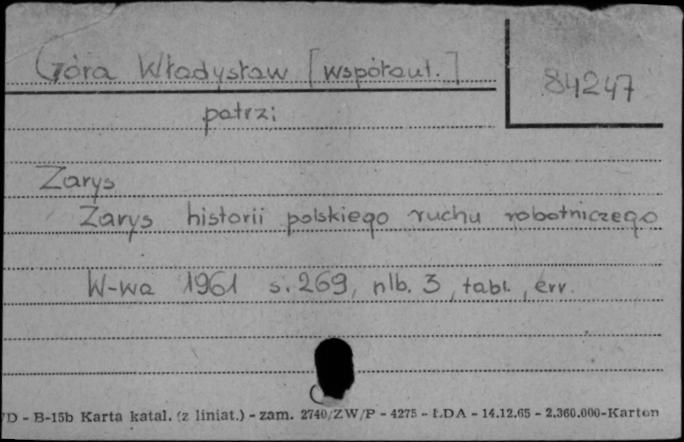 Góra Władysław [współaut.]
84247
patrzi
Zarys
Zarys historii polskiego ruchu robotniczego
W-wa 1961 s. 269, nlb. 3, tabl., err.
D - B-15b Karta katal. (z liniat.) - zam. 2740/ZW/P - 4275 - ŁDA - 14.12.65 - 2.360.000-Karton